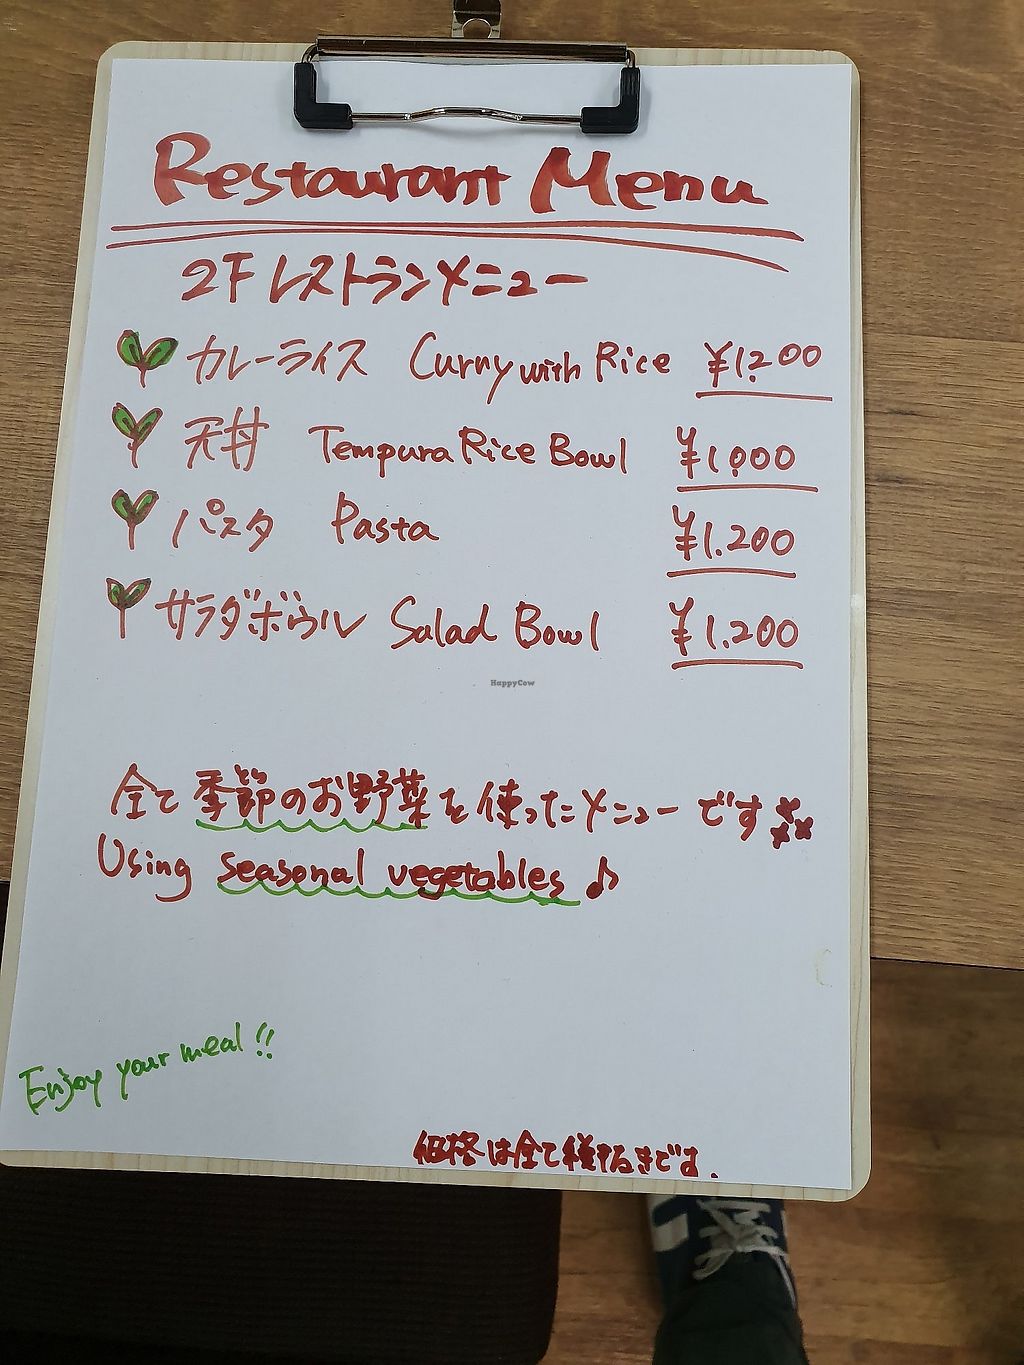 Restaurant Menu
2Fレストランメニュー
カレーライス Curry with Rice ¥1,200
天丼 Tempura Rice Bowl ¥1,000
パスタ Pasta ¥1,200
サラダボウル Salad Bowl ¥1,200
HappyCow
全て季節のお野菜を使ったメニューです
Using seasonal vegetables ♪
Enjoy your meal!!
価格は全て税抜きです.